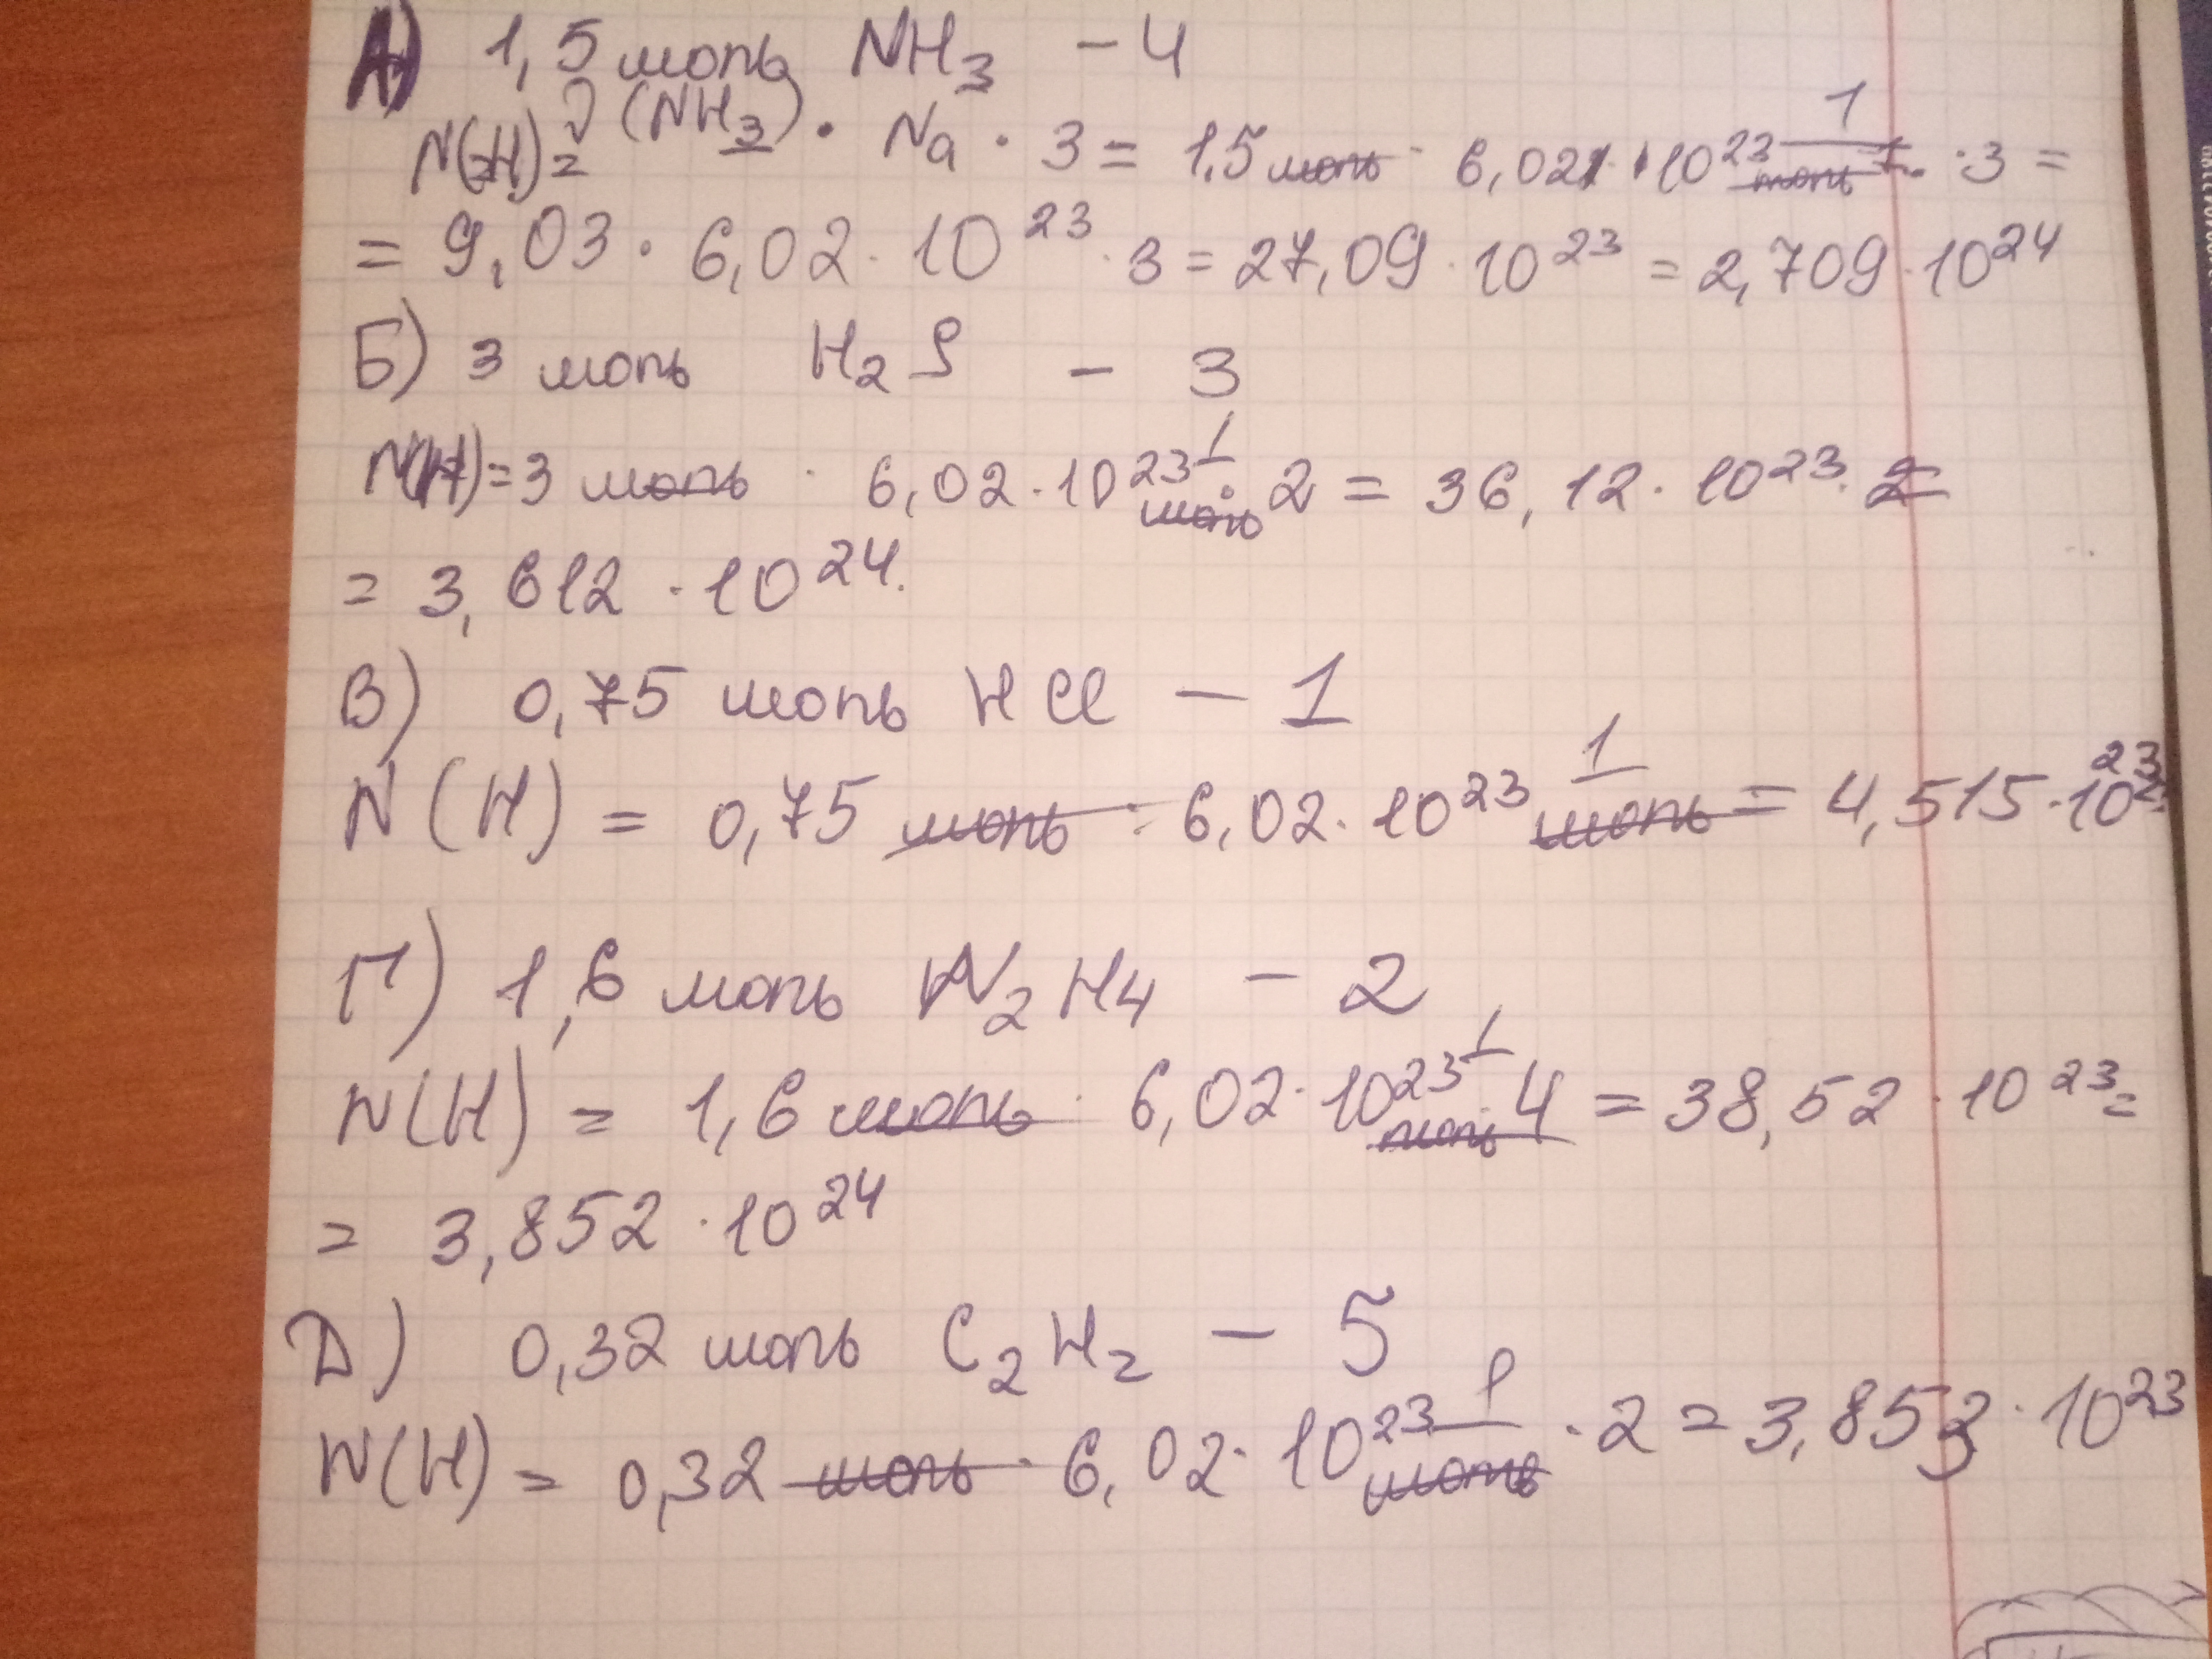 А) 1,5 моль NH₃ – 4
N(H) = ν(NH₃) · Na · 3 = 1,5 моль · 6,02 · 10²³ 1/моль · 3 =
= 9,03 · 6,02 · 10²³ · 3 = 27,09 · 10²³ = 2,709 · 10²⁴
Б) 3 моль H₂S – 3
N(H) = 3 моль · 6,02 · 10²³ 1/моль · 2 = 36,12 · 10²³ · 2
= 3,612 · 10²⁴.
В) 0,75 моль HCl – 1
N(H) = 0,75 моль · 6,02 · 10²³ 1/моль = 4,515 · 10²³
Г) 1,6 моль N₂H₄ – 2
N(H) = 1,6 моль · 6,02 · 10²³ 1/моль · 4 = 38,52 · 10²³ =
= 3,852 · 10²⁴
Д) 0,32 моль C₂H₂ – 5
N(H) = 0,32 моль · 6,02 · 10²³ 1/моль · 2 = 3,853 · 10²³